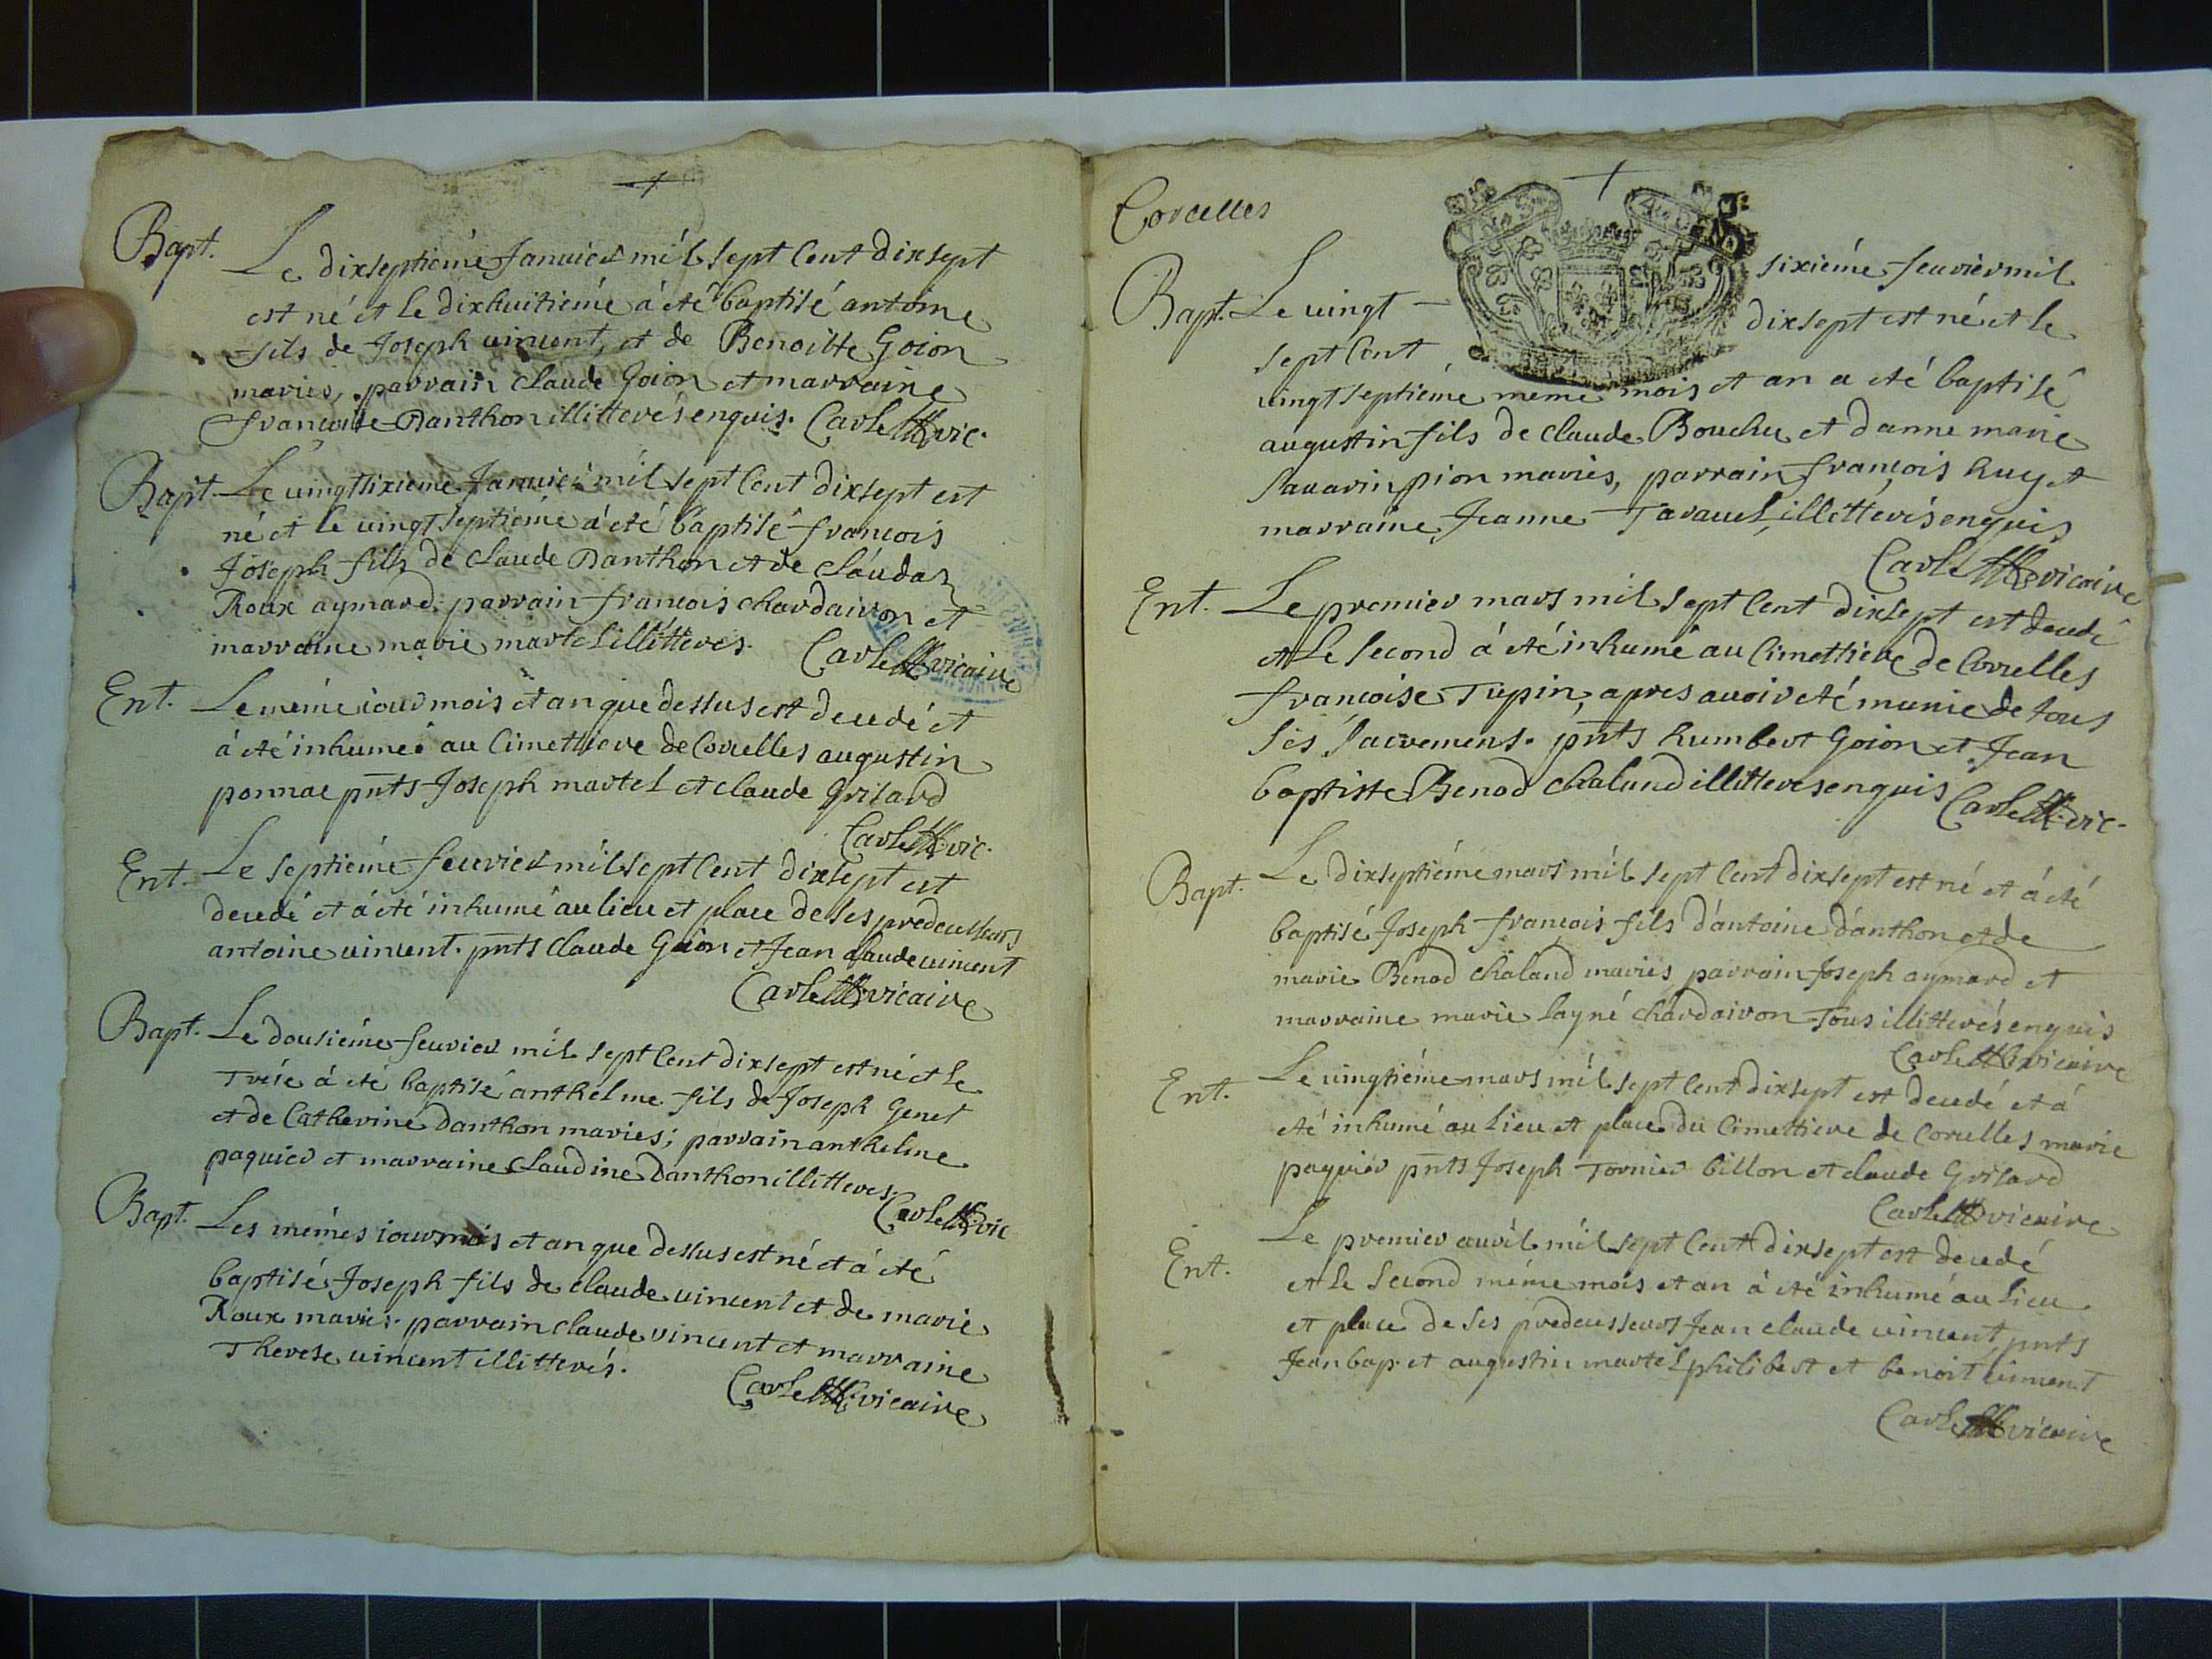 Bapt. Le dixseptiéme Januier mil sept Cent dixsept
est né et le dixhuitiéme à été baptisé antoine
fils de Joseph uincent, et de Benoitte Goion
mariés, parrain claude Goion et marraine
francoise Danthon illitterés enquis. Carle vic.
Bapt. Le uingtsixieme Januier mil sept Cent dixsept est
né et le uingt septiéme à été baptisé francois
Joseph fils de claude Danthon et de claudaz
Roux aymard. parrain francois chardairon et
marraine marie martel illitteres. Carle vicaire
Ent. Le méme iour mois et an que dessus est decedé et
à été inhumé au Cimettiere de Corcelles augustin
ponnae pnts Joseph martel et claude Grisard
Carle vic.
Ent. Le septiéme feurier mil sept Cent dixsept est
decedé et à été inhumé au lieu et place de ses predecesseurs
antoine uincent. pnts claude Goion et Jean claude uincent
Carle vicaire
Bapt. Le dousiéme feurier mil sept Cent dixsept est né et le
Treise à été baptisé anthelme fils de Joseph Genet
et de Catherine Danthon mariés; parrain anthelme
paquier et marraine claudine Danthon illitteres.
Carle vic
Bapt. Les mémes iour mois et an que dessus est né et à été
baptisé Joseph fils de claude uincent et de marie
Roux mariés. parrain claude vincent et marraine
Therese uincent illitterés.
Carle vicaire
Corcelles
Bapt. Le uingt - sixiéme feurier mil
sept Cent dixsept est né et le
uingt septiéme meme mois et an a été baptisé
augustin fils de claude Bouchu et danne marie
Sauarin pion mariés, parrain françois huy et
marraine Jeanne Tarauel, illitterés enquis
Carle vicaire
Ent. Le premier mars mil sept Cent dixsept est decedé
et Le second à été inhumé au Cimettiere de Corcelles
francoise Tupin, apres auoir eté munie de tous
ses sacremens. pnts humbert Goion et Jean
baptiste Benod chaland illitteres enquis Carle vic.
Bapt. Le dixseptiéme mars mil sept Cent dixsept est né et à été
baptisé Joseph françois fils d'antoine d'anthon et de
marie Benod chaland mariés parrain Joseph aymard et
marraine marie layné chardairon Tous illitterés enquis
Carle vicaire
Ent. Le uingtiéme mars mil sept Cent dixsept est decedé et à
eté inhumé au Lieu et place du Cimettiere de Corcelles marie
paquier pnts Joseph Tornier billon et claude Grisard
Carle vicaire
Ent. Le premier auril mil sept Cent dixsept est decedé
et le second méme mois et an à été inhumé au Lieu
et place de ses predecesseurs Jean claude uincent, pnts
Jean bap. et augustin martel philibert et benoit uincent
Carle vicaire